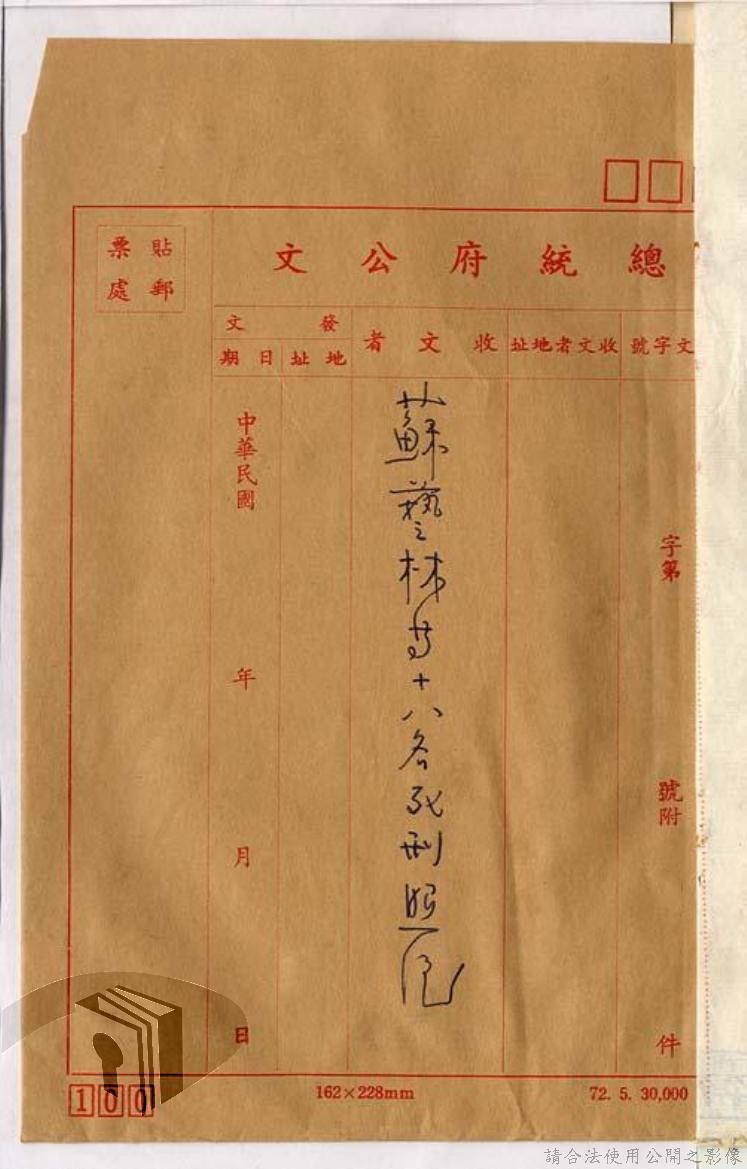 總統府公文
貼郵
票處
文字號
收文者地址
收文者
發文
地址
日期
字第
號附
件
蘇藝林等十八名死刑照片
中華民國
年
月
日
100
162×228mm
72. 5. 30,000
請合法使用公開之影像